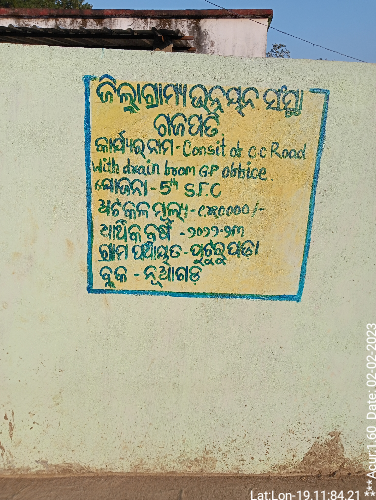 ଜିଲ୍ଲାଗ୍ରାମ୍ୟ ଉନ୍ନୟନ ସଂସ୍ଥା
ଗଜପତି
କାର୍ଯ୍ୟର ନାମ - Const of c c Road
with drain from GP obbice
ଯୋଜନା - 5th S.F.C
ଅଟକଳ ମୂଲ୍ୟ -
ଆର୍ଥିକ ବର୍ଷ - ୨୦୨୨-୨୩
ଗ୍ରାମ ପଞ୍ଚାୟତ - ପୁଟୁରୁପଡା
ବ୍ଲକ - ନୂଆଗଡ଼
Lat:Lon-19.11:84.21
***Acur:1.60 Date: 02-02-2023